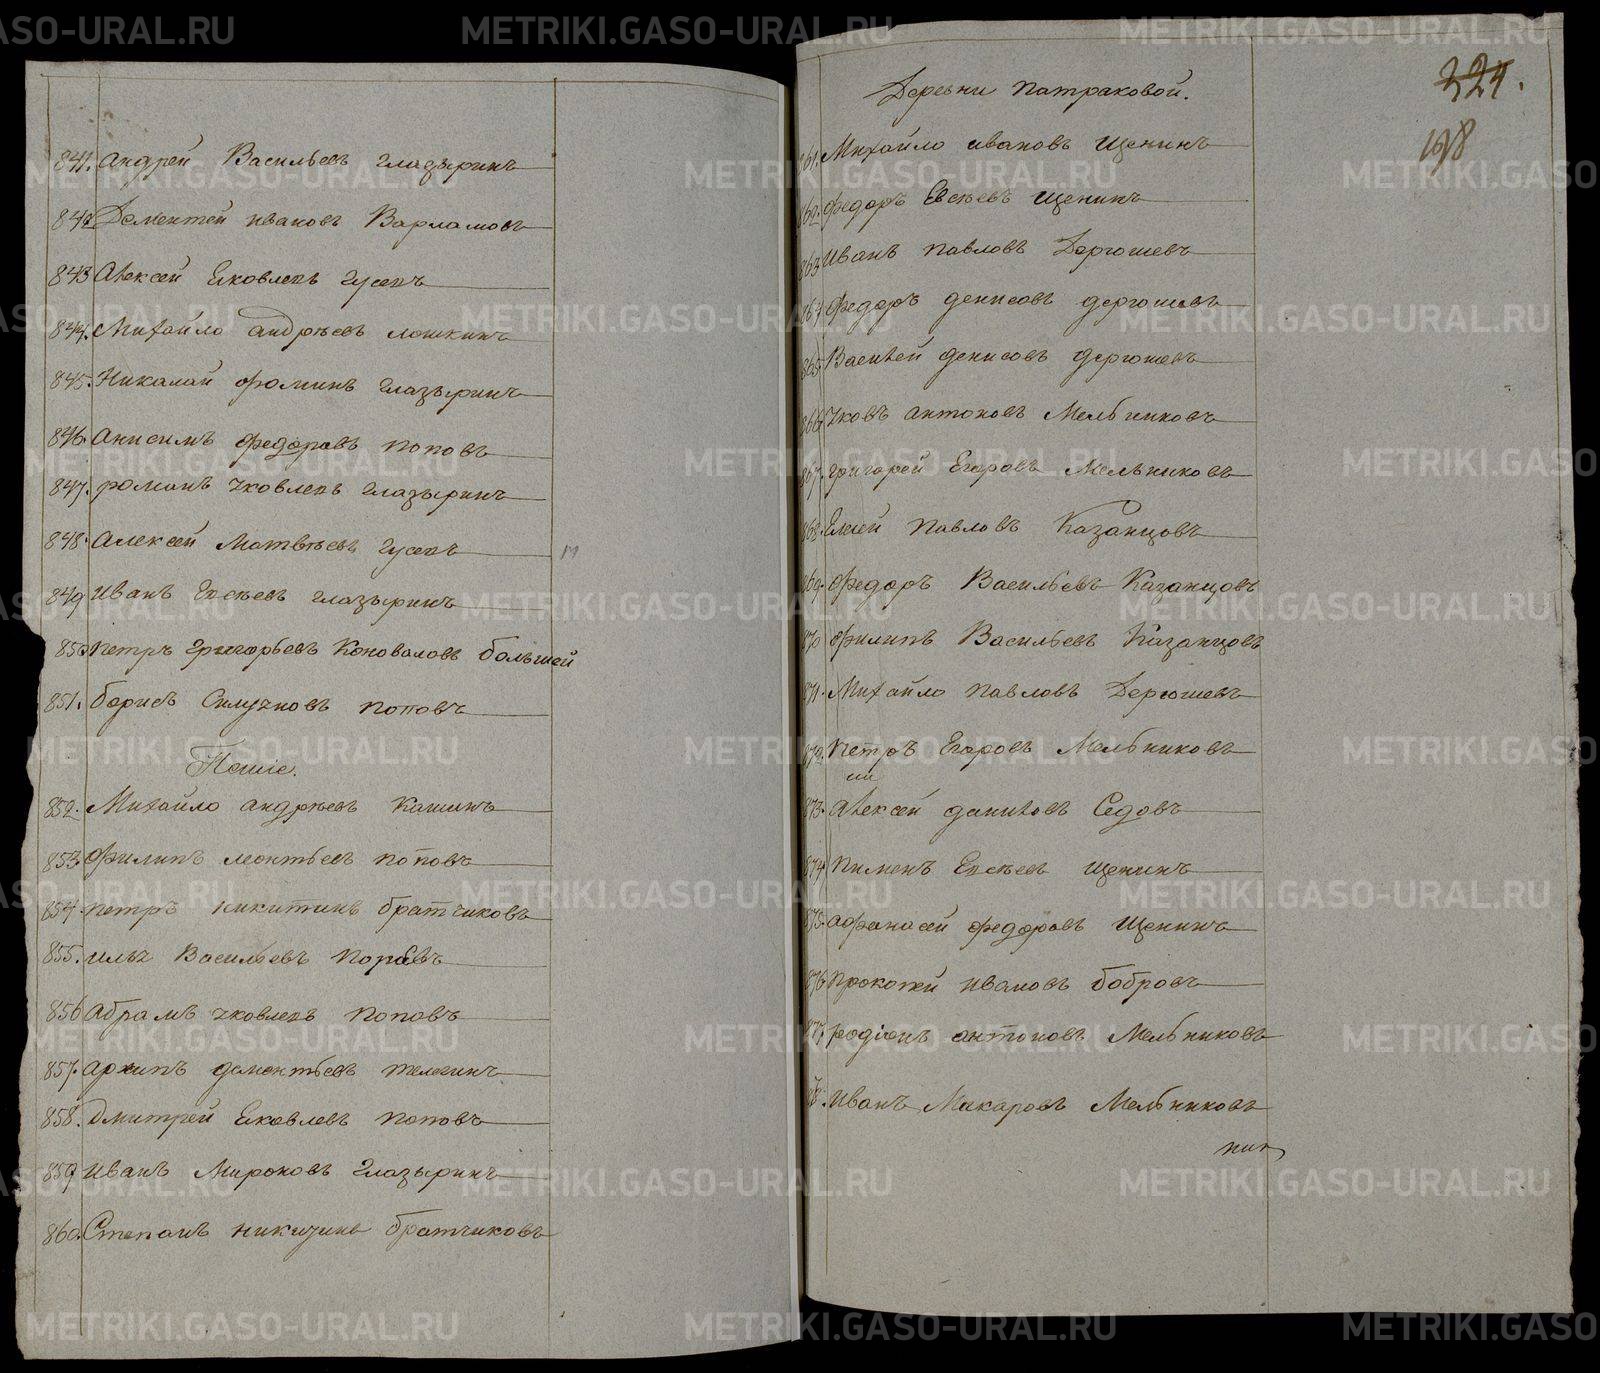 841. Андрей Васильевъ Гладзыринъ
842. Дементей Ивановъ Варламовъ
843 Алексей Яковлевъ Гусевъ
844. Михайло Андреевъ Лошкинъ
845. Николай Фоминъ Глазыринъ
846. Анисимъ Федоровъ Поповъ
847. Романъ Яковлевъ Глазыринъ
848. Алексей Матвеевъ Гусевъ
849 Иванъ Евсеевъ Глазыринъ
850 Петръ Григорьевъ Коноваловъ большей
851. Борисъ Силуяновъ Поповъ
Пешие.
852. Михайло Андреевъ Кашинъ
853. Филипъ Леонтьевъ Поповъ
854. Петръ Никитинъ Братчиковъ
855. Илья Васильевъ Поповъ
856 Абрамъ Яковлевъ Поповъ
857. Архипъ Дементьевъ Телегинъ
858. Дмитрей Яковлевъ Поповъ
859 Иванъ Мироновъ Глазыринъ
860. Степанъ Никитинъ Братчиковъ
324.
198
Деревни Патраковой.
861. Михайло Ивановъ Щенинъ
862. Федоръ Евсеевъ Щенинъ
863 Иванъ Павловъ Дергошевъ
864 Федоръ Денисовъ Дергошевъ
865. Василей Денисовъ Дергошевъ
866. Яковъ Антоновъ Мельниковъ
867. Григорей Егоровъ Мельниковъ
868. Елисей Павловъ Казанцовъ
869. Федоръ Васильевъ Казанцовъ
870 Филипъ Васильевъ Казанцовъ
871. Михайло Павловъ Дергошевъ
872. Петръ Егоровъ Мельниковъ
873. Алексей Даниловъ Седовъ
874 Пименъ Евсеевъ Щенинъ
875. Афанасей Федоровъ Щенинъ
876 Прокопей Ивановъ Бобровъ
877. Родионъ Антоновъ Мельниковъ
878. Иванъ Макаровъ Мельниковъ
METRIKI.GASO-URAL.RU